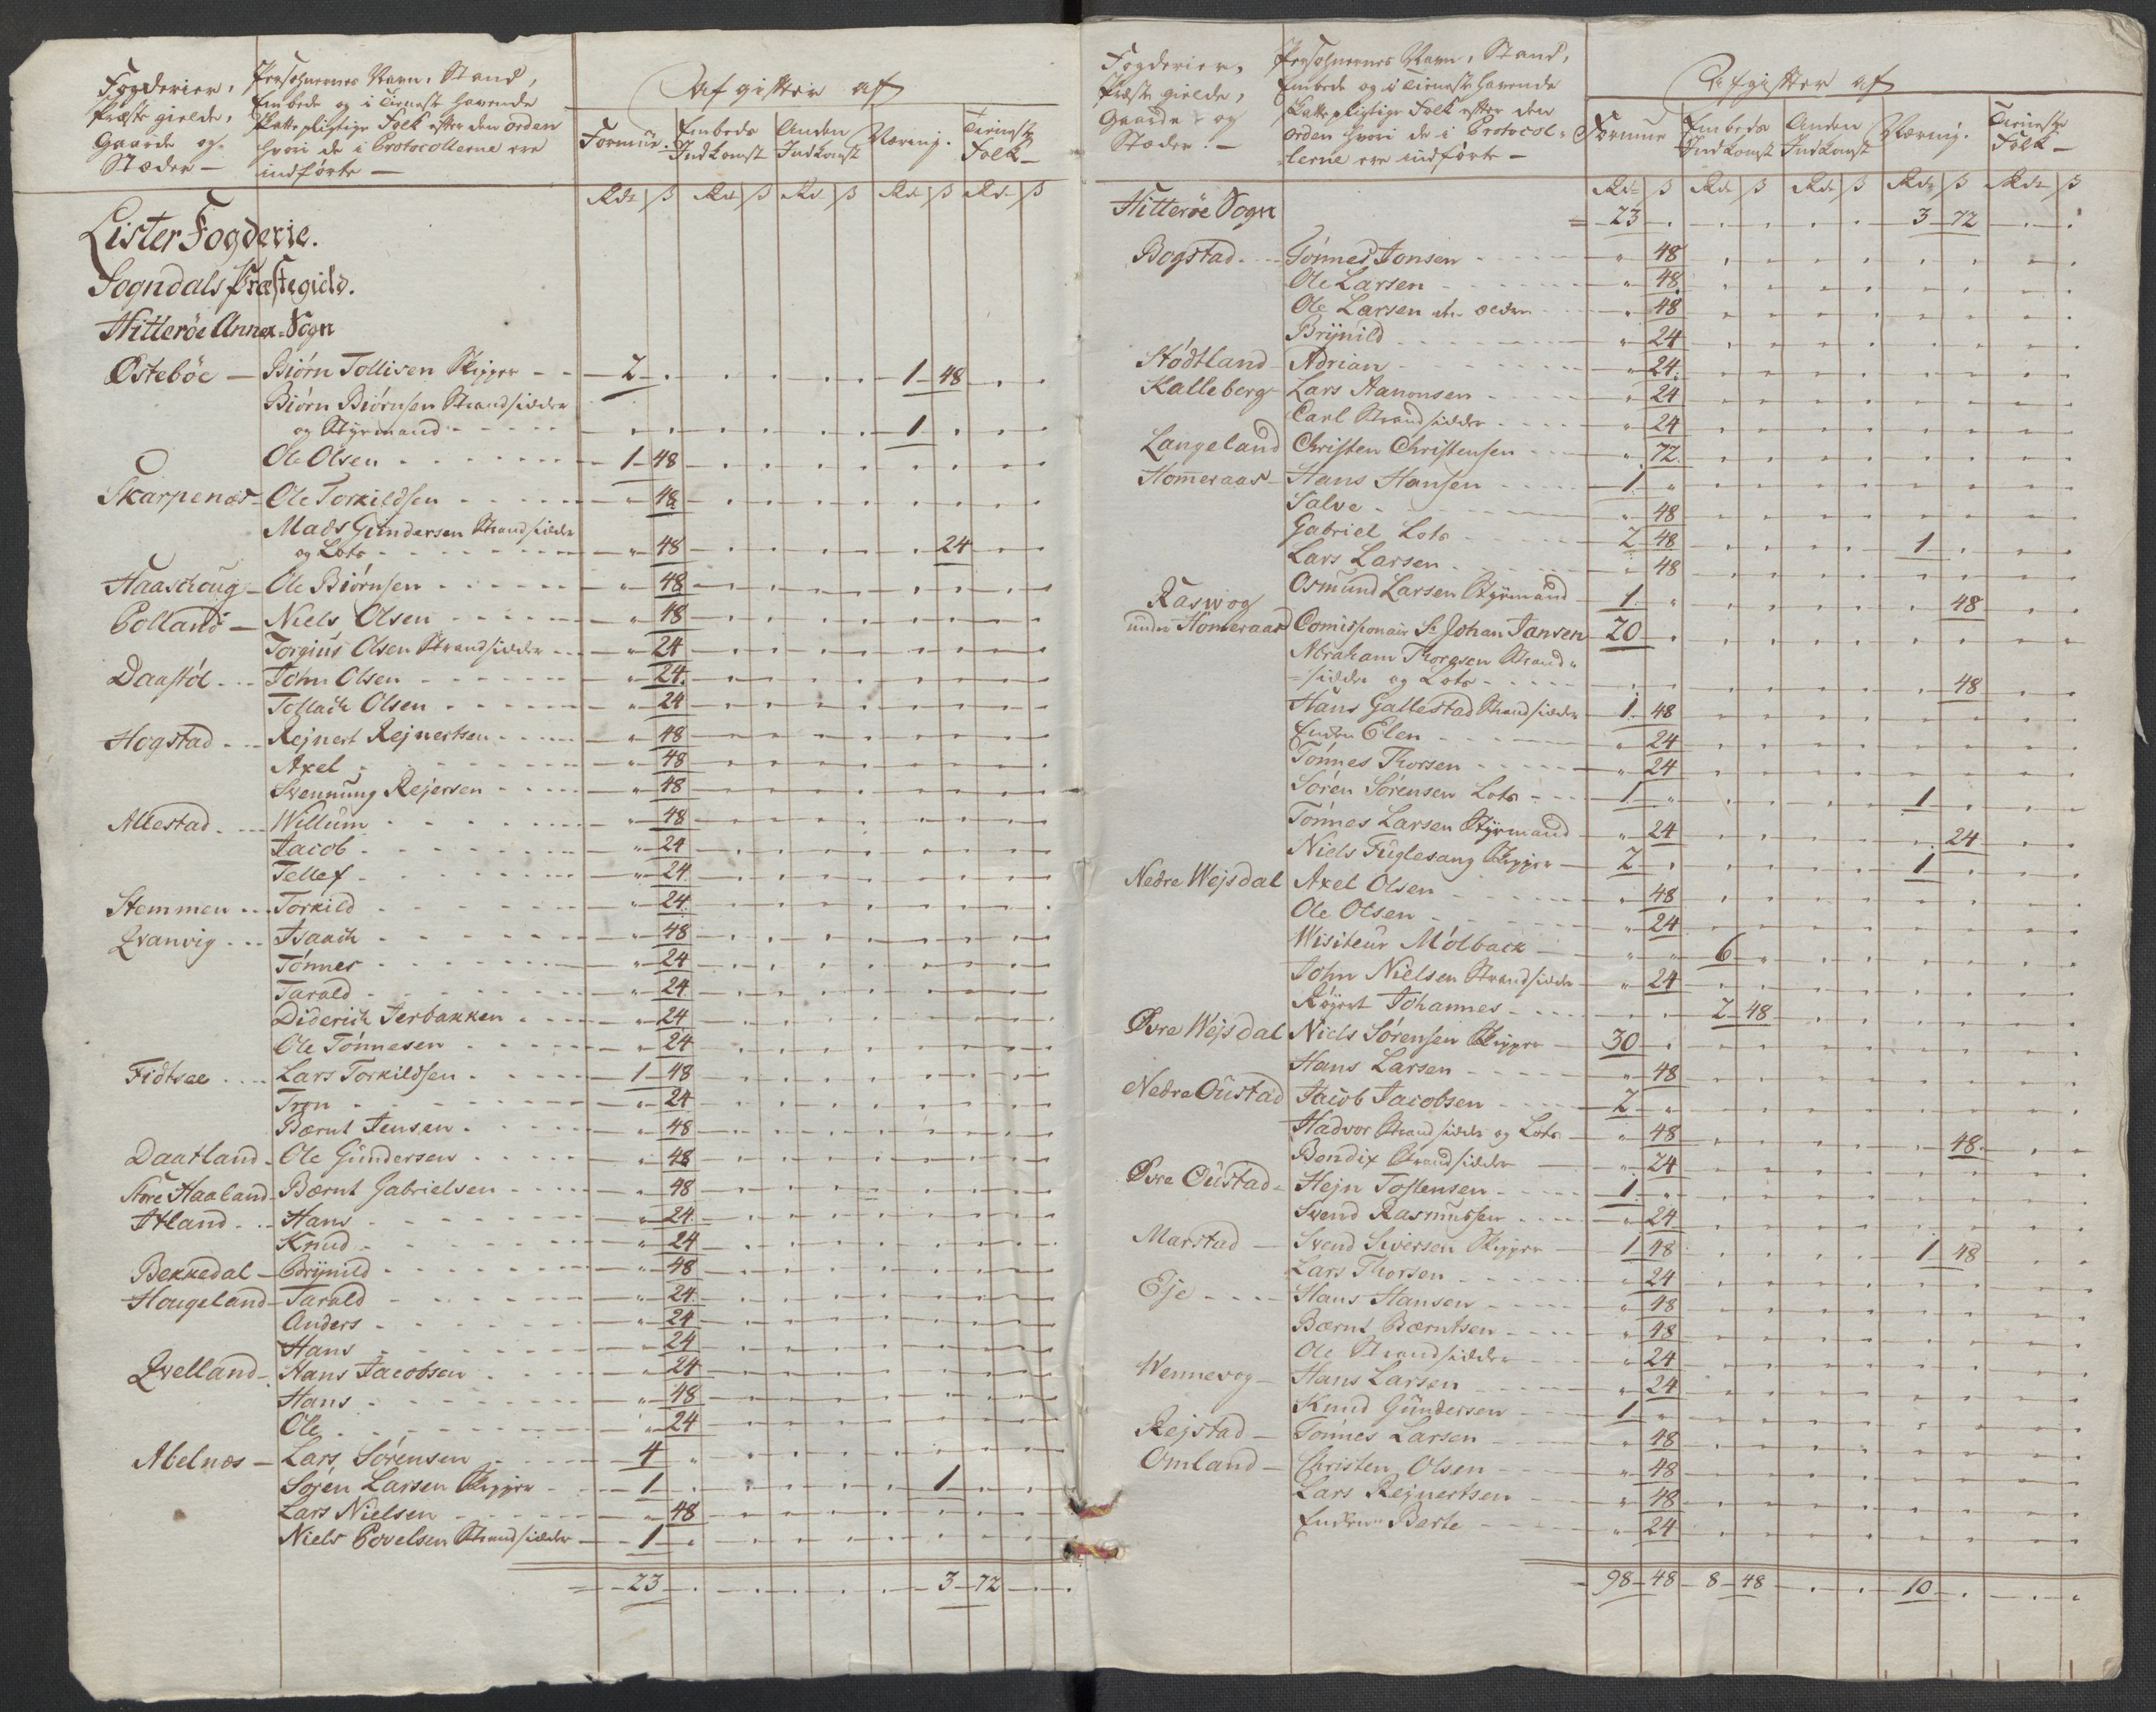 Fogderier,
Præste gielde,
Gaarde og
Stæder —
Persohnernes Navn, Stand,
Embede og i Tieneste havende
Skattepligtige Folk efter den orden
hvori de i Protocollerne ere
indførte —
Afgifter af
Formue. Embeds Indkomst Anden Indkomst Næring. Tieneste Folk —
Rdr ß Rdr ß Rdr ß Rdr ß Rdr ß
Lister Fogderie.
Sogndals Præstegield.
Hitterøe Annex-Sogn
Østebøe — Biørn Tollisen Skipper - - 2 - . 1 - 48
Biørn Biørnsen Strandsidder
og Styrmand - - - 1 - .
Ole Olsen - - - 1 - 48
Skarpenæs - Ole Torkildsen - - - " 48
Mads Gundersen Strandsidder
og Lots - - - " 48 . 24
Haaschoug - Ole Biørnsen - - - " 48
Polland — Niels Olsen - - - " 48
Torgius Olsen Strandsidder - - " 24
Daastøl - - John Olsen - - - " 24
Tollach Olsen - - - " 24
Hogstad - - Rejnert Rejnertsen - - - " 48
Axel - - - " 48
Svennung Rejersen - - - " 48
Allestad - - Willum - - - " 48
Jacob - - - " 24
Tellef - - - " 24
Stemmen - - Torkild - - - " 24
Qvanvig - - Isaach - - - " 48
Tønnes - - - " 24
Tarald - - - " 24
Diderich Jerbakken - - - " 24
Ole Tønnesen - - - " 24
Fidtsee - - Lars Torkildsen - - - 1 - 48
Tron - - - " 24
Bærnt Jensen - - - " 48
Daatland - Ole Gundersen - - - " 48
Store Haaland - Bærnt Gabrielsen - - - " 48
Itland - - Hans - - - " 24
Knud - - - " 24
Bekkedal — Brynild - - - " 48
Hougeland - Tarald - - - " 24
Anders - - - " 24
Hans - - - " 24
Qvelland - Hans Jacobsen - - - " 24
Hans - - - " 48
Ole - - - " 24
Abelnæs — Lars Sørensen - - - 4 "
Søren Larsen Skipper - - - 1 - . 1 - .
Lars Nielsen - - - " 48
Niels Povelsen Strandsidder - - 1 - .
= 23 - . 3 - 72
Fogderier,
Præste gielde,
Gaarde og
Stæder. —
Persohnernes Navn, Stand,
Embede og i Tieneste havende
Skattepligtige Folk efter den
orden hvori de i Protocol-
lerne ere indførte —
Afgifter af
Formue Embeds Indkomst Anden Indkomst Næring. Tieneste Folk —
Rdr ß Rdr ß Rdr ß Rdr ß Rdr ß
Hitterøe Sogn = 23 - . 3 - 72
Bogstad - - Tønnes Jonsen - - - " 48
Ole Larsen - - - " 48
Ole Larsen den ældre - - - " 48
Brynild - - - " 24
Stødtland - Adrian - - - " 24
Kalleberg - Lars Aanonsen - - - " 24
Carl Strandsidder - - - " 24
Langeland Christen Christensen - - - " 72
Homeraas - Hans Hansen - - - 1 "
Salve - - - " 48
Gabriel Lots - - - 2 48 1 - .
Lars Larsen - - - " 48
Raswog Osmund Larsen Styrmand - 1 " . 48
under Homeraas Comissionair Sr Johan Jansen 20 .
Abraham Thoresen Strand-
-sidder og Lots - - - . 48
Hans Gallestad Strandsidder - 1 48
Enken Elen - - - " 24
Tønnes Thorsen - - - " 24
Søren Sørensen Lots - - 1 " 1 - .
Tønnes Larsen Styrmand - " 24 . 24
Niels Fuglesang Skipper - 2 . 1 - .
Nedre Wejsdal Axel Olsen - - - " 48
Ole Olsen - - - " 24
Wisiteur Mølback - - " " 6 "
John Nielsen Strandsidder - " 24
Johannes - - - . . 2 - 48
Øvre Wejsdal Niels Sørensen Skipper - 30 - .
Hans Larsen - - - " 48
Nedre Oustad Jacob Jacobsen - - - 2 "
Hadvor Strandsidder og Lots - " 48 . 48
Bendix Strandsidder - " 24
Øvre Oustad - Hejn Tostensen - - - 1 "
Svend Rasmussen - - - " 24
Marstad — Svend Siversen Skipper - 1 48 1 48
Lars Thorsen - - - " 24
Eje - - - Hans Hansen - - - " 48
Bærnt Bærntsen - - - " 48
Ole Strandsidder - - " 24
Wennevog - Hans Larsen - - - " 24
Knud Gundersen - - 1 "
Rejstad — Tønnes Larsen - - - " 48
Omland — Christen Olsen - - - " 48
Lars Rejnertsen - - " 48
Enken Berte - - - " 24
98 - 48 - 8 - 48 - . 10 - .